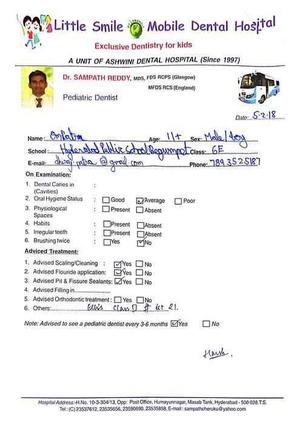 Little Smile Mobile Dental Hospital
Exclusive Dentistry for kids
A UNIT OF ASHWINI DENTAL HOSPITAL (Since 1997)
Dr. SAMPATH REDDY, MDS, FDS RCPS (Glasgow)
MFDS RCS (England)
Pediatric Dentist
Date: 5-2-18
Name: Age: 11+ Sex: Male/Boy
School: Hyderabad Public School Begumpet Class: 6E
E-mail: @gmail.com Phone: 7893525187
On Examination:
1. Dental Caries in :
(Cavities)
2. Oral Hygiene Status : Good Average Poor
3. Physiological : Present Absent
Spaces
4. Habits : Present Absent
5. Irregular teeth : Present Absent
6. Brushing twice : Yes No
Adviced Treatment:
1. Advised Scaling/Cleaning : Yes No
2. Advised Flouride application: Yes No
3. Advised Pit & Fissure Sealants: Yes No
4. Advised Filling in
5. Advised Orthodontic treatment : Yes No
6. Others: Class 21.
Note: Advised to see a pediatric dentist every 3-6 months Yes No
Hospital Address: H.No. 10-3-304/13, Opp: Post Office, Humayunnagar, Masab Tank, Hyderabad - 500 028 T.S.
Tel: (C) 23537612, 23535656, 23590690, 23535858, E-mail: sampathcheruku@yahoo.com